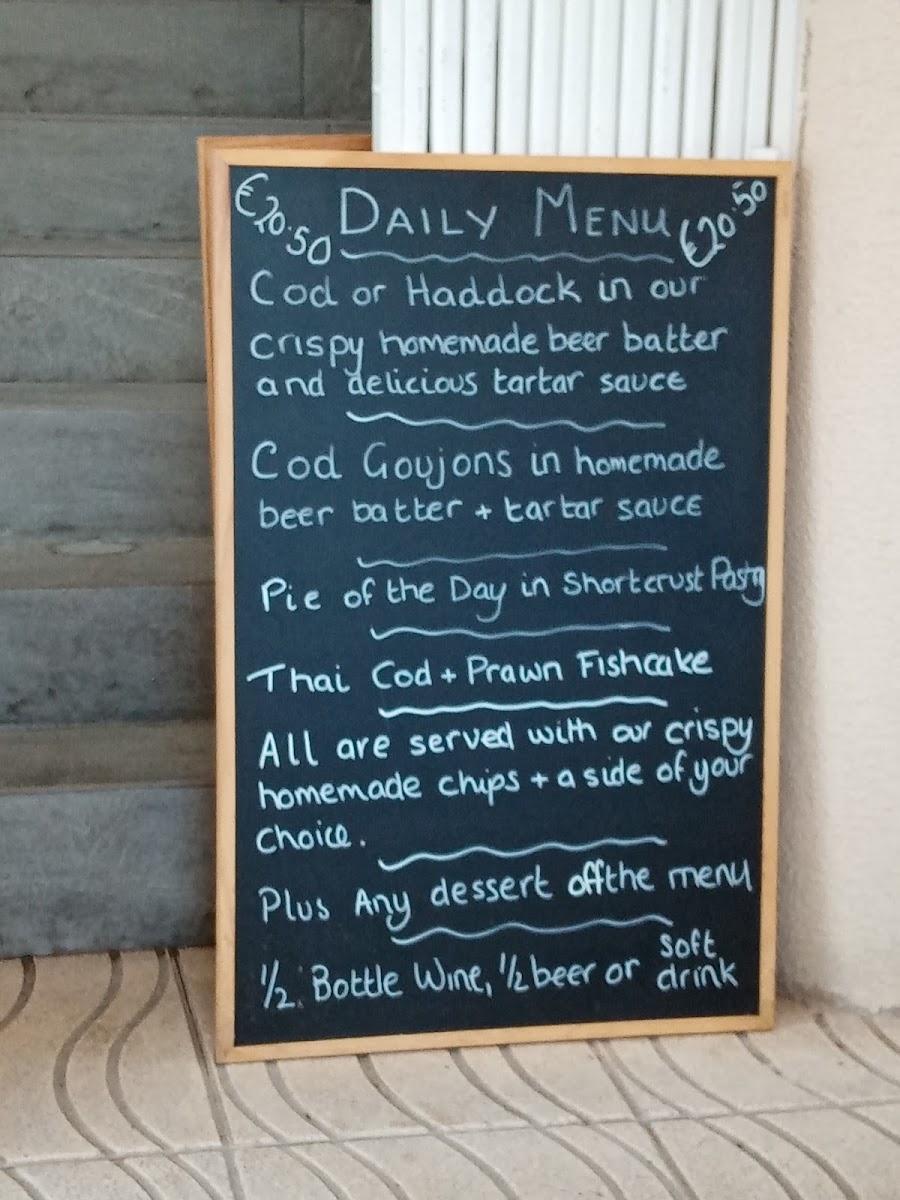 €20.50 DAILY MENU €20.50
Cod or Haddock in our
crispy homemade beer batter
and delicious tartar sauce
Cod Goujons in homemade
beer batter + tartar sauce
Pie of the Day in Shortcrust Pastry
Thai Cod + Prawn Fishcake
All are served with our crispy
homemade chips + a side of your
choice.
Plus Any dessert off the menu
1/2 Bottle Wine, 1/2 beer or soft drink